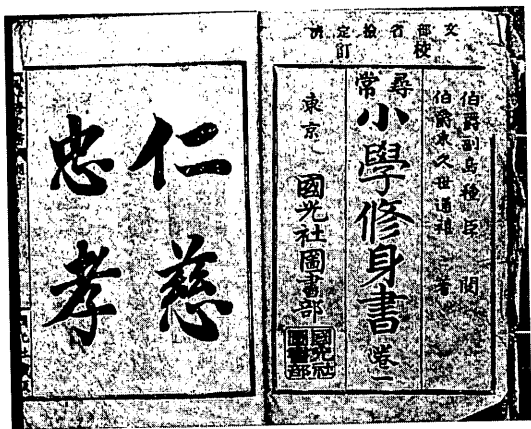 文部省檢定濟
校訂
伯爵副島種臣 閲
伯爵東久世通禧 著
尋常
小學修身書 卷一
東京 國光社圖書部
國光社
圖書部
仁慈
忠孝